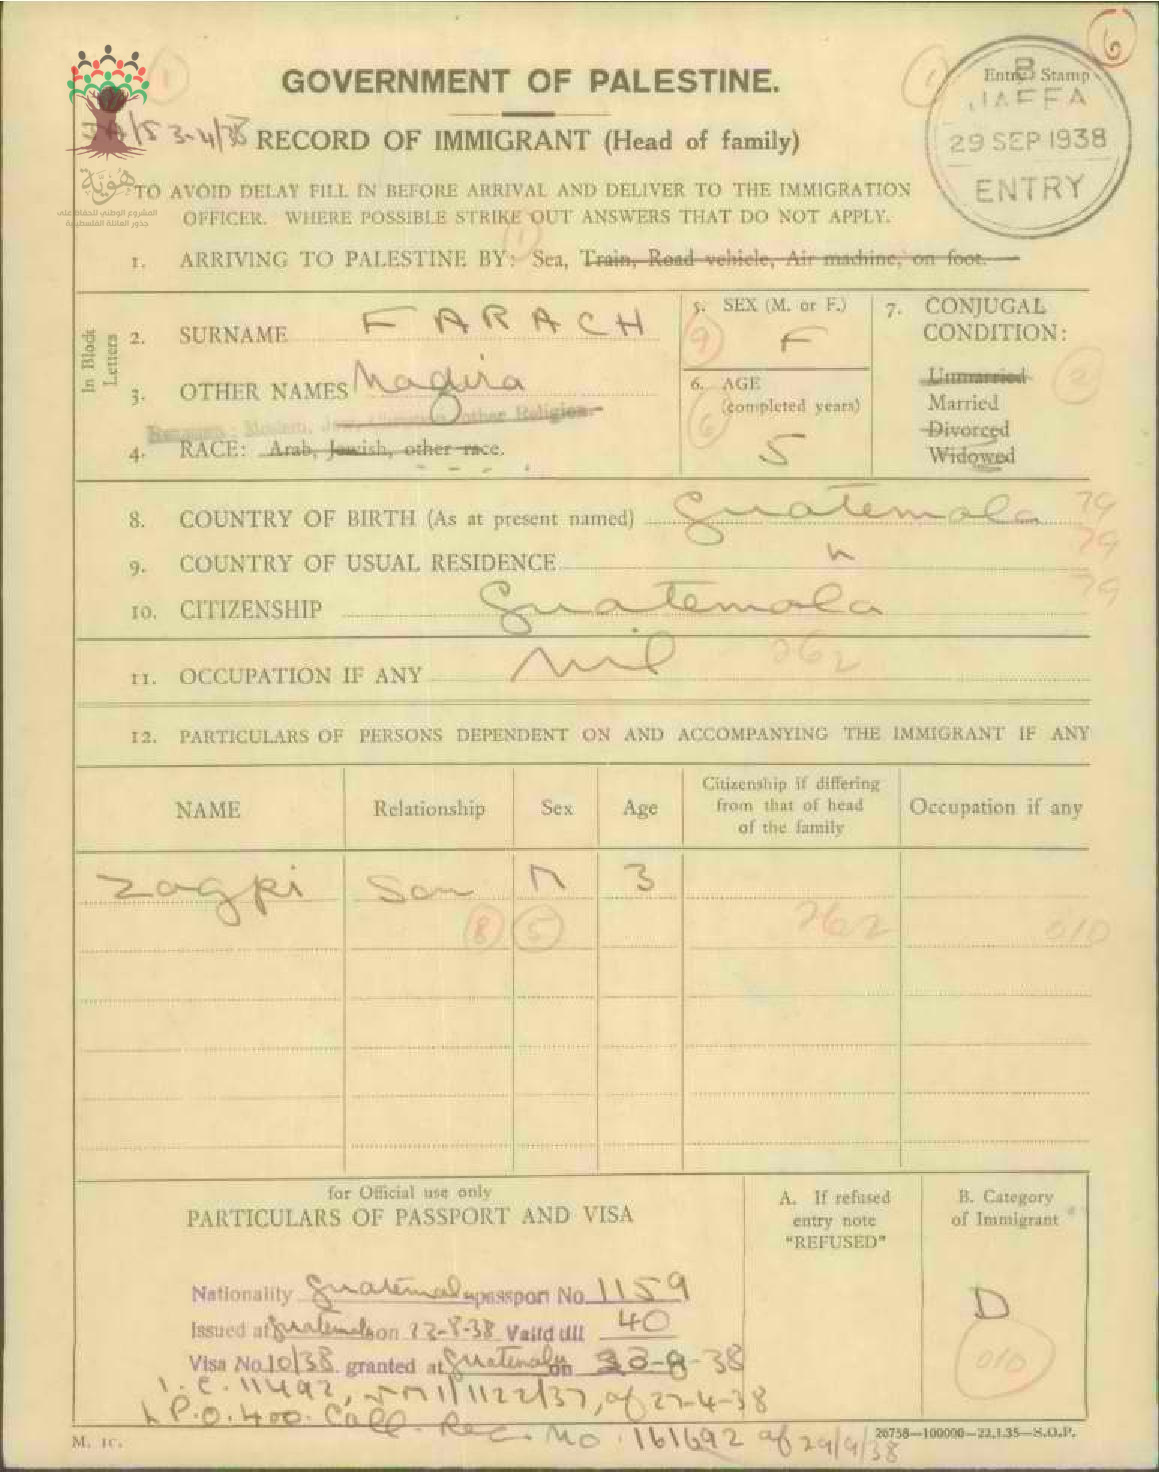 6
GOVERNMENT OF PALESTINE.
Entry Stamp
B
JAFFA
29 SEP 1938
ENTRY
3-4/38
RECORD OF IMMIGRANT (Head of family)
هوية
المشروع الوطني للحفاظ على
جذور العائلة الفلسطينية
TO AVOID DELAY FILL IN BEFORE ARRIVAL AND DELIVER TO THE IMMIGRATION
OFFICER. WHERE POSSIBLE STRIKE OUT ANSWERS THAT DO NOT APPLY.
1. ARRIVING TO PALESTINE BY: Sea, Train, Road vehicle, Air machine, on foot.
In Block Letters
2. SURNAME FARACH
3. OTHER NAMES Madira
Moslem, Jew, Christian, other Religion.
4. RACE: Arab, Jewish, other race.
5. SEX (M. or F.)
9
F
6. AGE
(completed years)
6
5
7. CONJUGAL
CONDITION:
Unmarried
2
Married
Divorced
Widowed
8. COUNTRY OF BIRTH (As at present named) Guatemala 79
9. COUNTRY OF USUAL RESIDENCE " 79
10. CITIZENSHIP Guatemala 79
11. OCCUPATION IF ANY nil 262
12. PARTICULARS OF PERSONS DEPENDENT ON AND ACCOMPANYING THE IMMIGRANT IF ANY
NAME Relationship Sex Age Citizenship if differing from that of head of the family Occupation if any
Zagpi Son M 3
8 5 262 010
for Official use only
PARTICULARS OF PASSPORT AND VISA
A. If refused
entry note
"REFUSED"
B. Category
of Immigrant
D
010
Nationality Guatemala passport No. 1159
Issued at Guatemala on 22-8-38 Valid till 40
Visa No. 10/38 granted at Guatemala on 23-8-38
I.C. 11492, 1/1122/37, of 27-4-38
L P.O. 400. Coll. Rec. No. 161692 of 29/9/38
M. IC.
26758—100000—22.1.35—S.O.P.